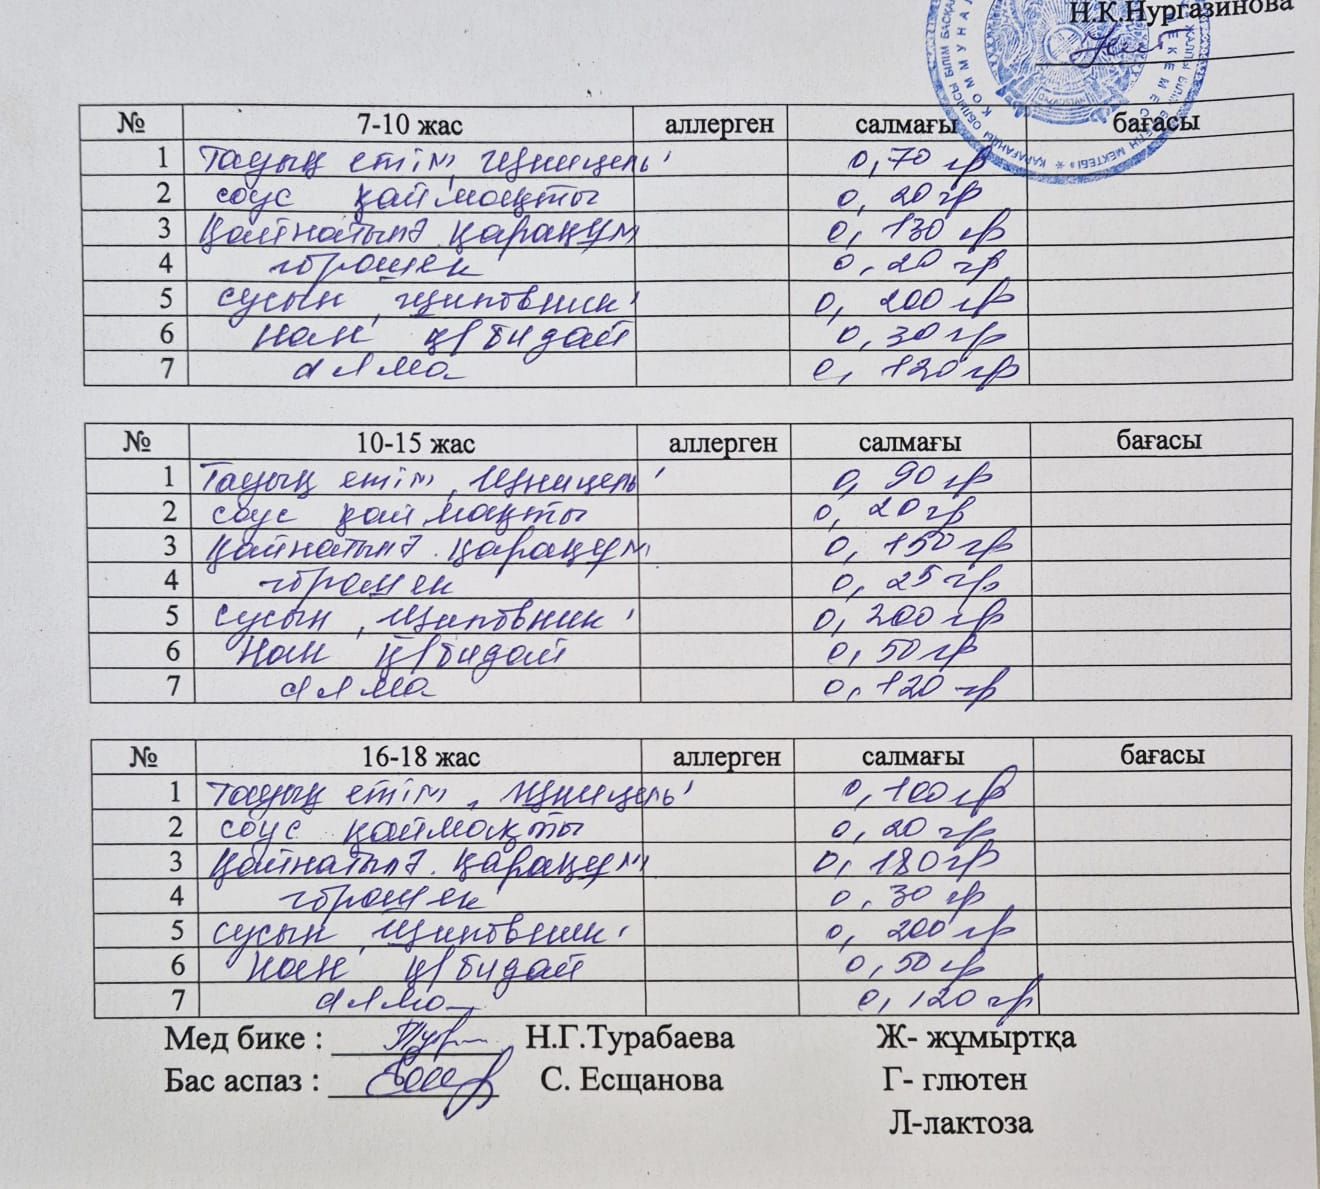 Н.К.Нургазинова
№ 7-10 жас аллерген салмағы бағасы
1 Тауық етін, шницель' 0,70 гр
2 соус қаймақты 0,20 гр
3 Қайнатылғ. қарақұм 0,130 гр
4 горошек 0,20 гр
5 сусын, шиповник' 0,200 гр
6 Нан қ/бидай 0,30 гр
7 алма 0,120 гр
№ 10-15 жас аллерген салмағы бағасы
1 Тауық етін, шницель' 0,90 гр
2 соус қаймақты 0,20 гр
3 Қайнатылғ. қарақұм 0,150 гр
4 горошек 0,25 гр
5 сусын, шиповник' 0,200 гр
6 Нан қ/бидай 0,50 гр
7 алма 0,120 гр
№ 16-18 жас аллерген салмағы бағасы
1 Тауық етін, шницель' 0,100 гр
2 соус қаймақты 0,20 гр
3 Қайнатылғ. қарақұм 0,180 гр
4 горошек 0,30 гр
5 сусын, шиповник' 0,200 гр
6 Нан қ/бидай 0,50 гр
7 алма 0,120 гр
Мед бике : Н.Г.Турабаева Ж- жұмыртқа
Бас аспаз : С. Есщанова Г- глютен
Л-лактоза